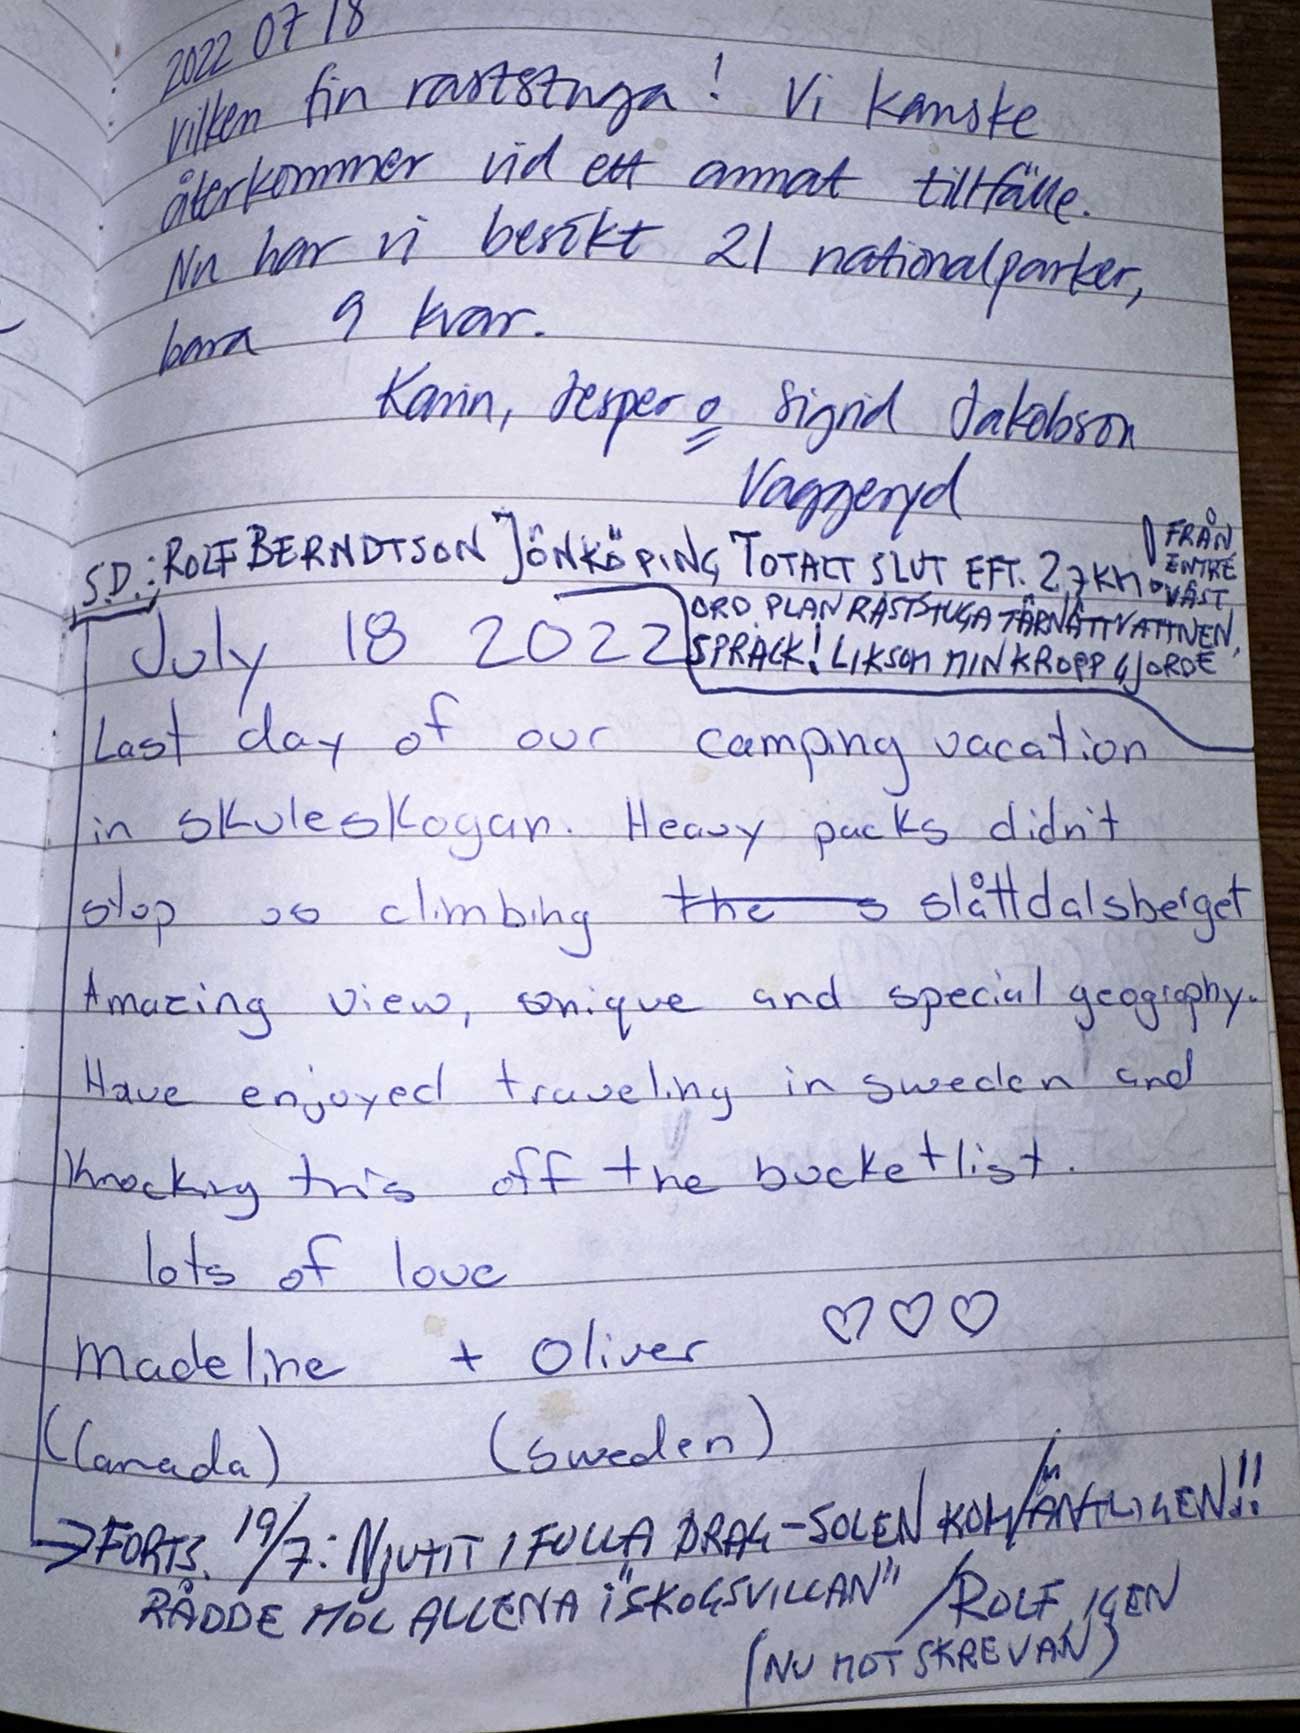 2022 07 18
Vilken fin raststuga! Vi kanske
återkommer vid ett annat tillfälle.
Nu har vi besökt 21 nationalparker,
bara 9 kvar.
Karin, Jesper o Sigrid Jakobson
Vaggeryd
S.D.: ROLF BERNDTSON JÖNKÖPING TOTALT SLUT EFT. 2,7 KM.
FRÅN
ENTRÉ
VÄST,
ORD. PLAN RASTSTUGA TÄRNÄTTVATTNEN,
SPRACK! LIKSOM MIN KROPP GJORDE
July 18 2022
Last day of our camping vacation
in skuleskogan. Heavy packs didn't
stop us climbing the s slåttdalsberget
Amazing view, unique and special geography.
Have enjoyed traveling in sweden and
Knocking this off the bucketlist.
lots of love
Madeline + Oliver ♡♡♡
(Canada) (Sweden)
→ FORTS. 19/7: NJUTIT I FULLA DRAG - SOLEN KOM ÄNTLIGEN!!
RÅDDE MOL ALLENA i "SKOGSVILLAN" /ROLF, IGEN
(NU MOT SKREVAN)